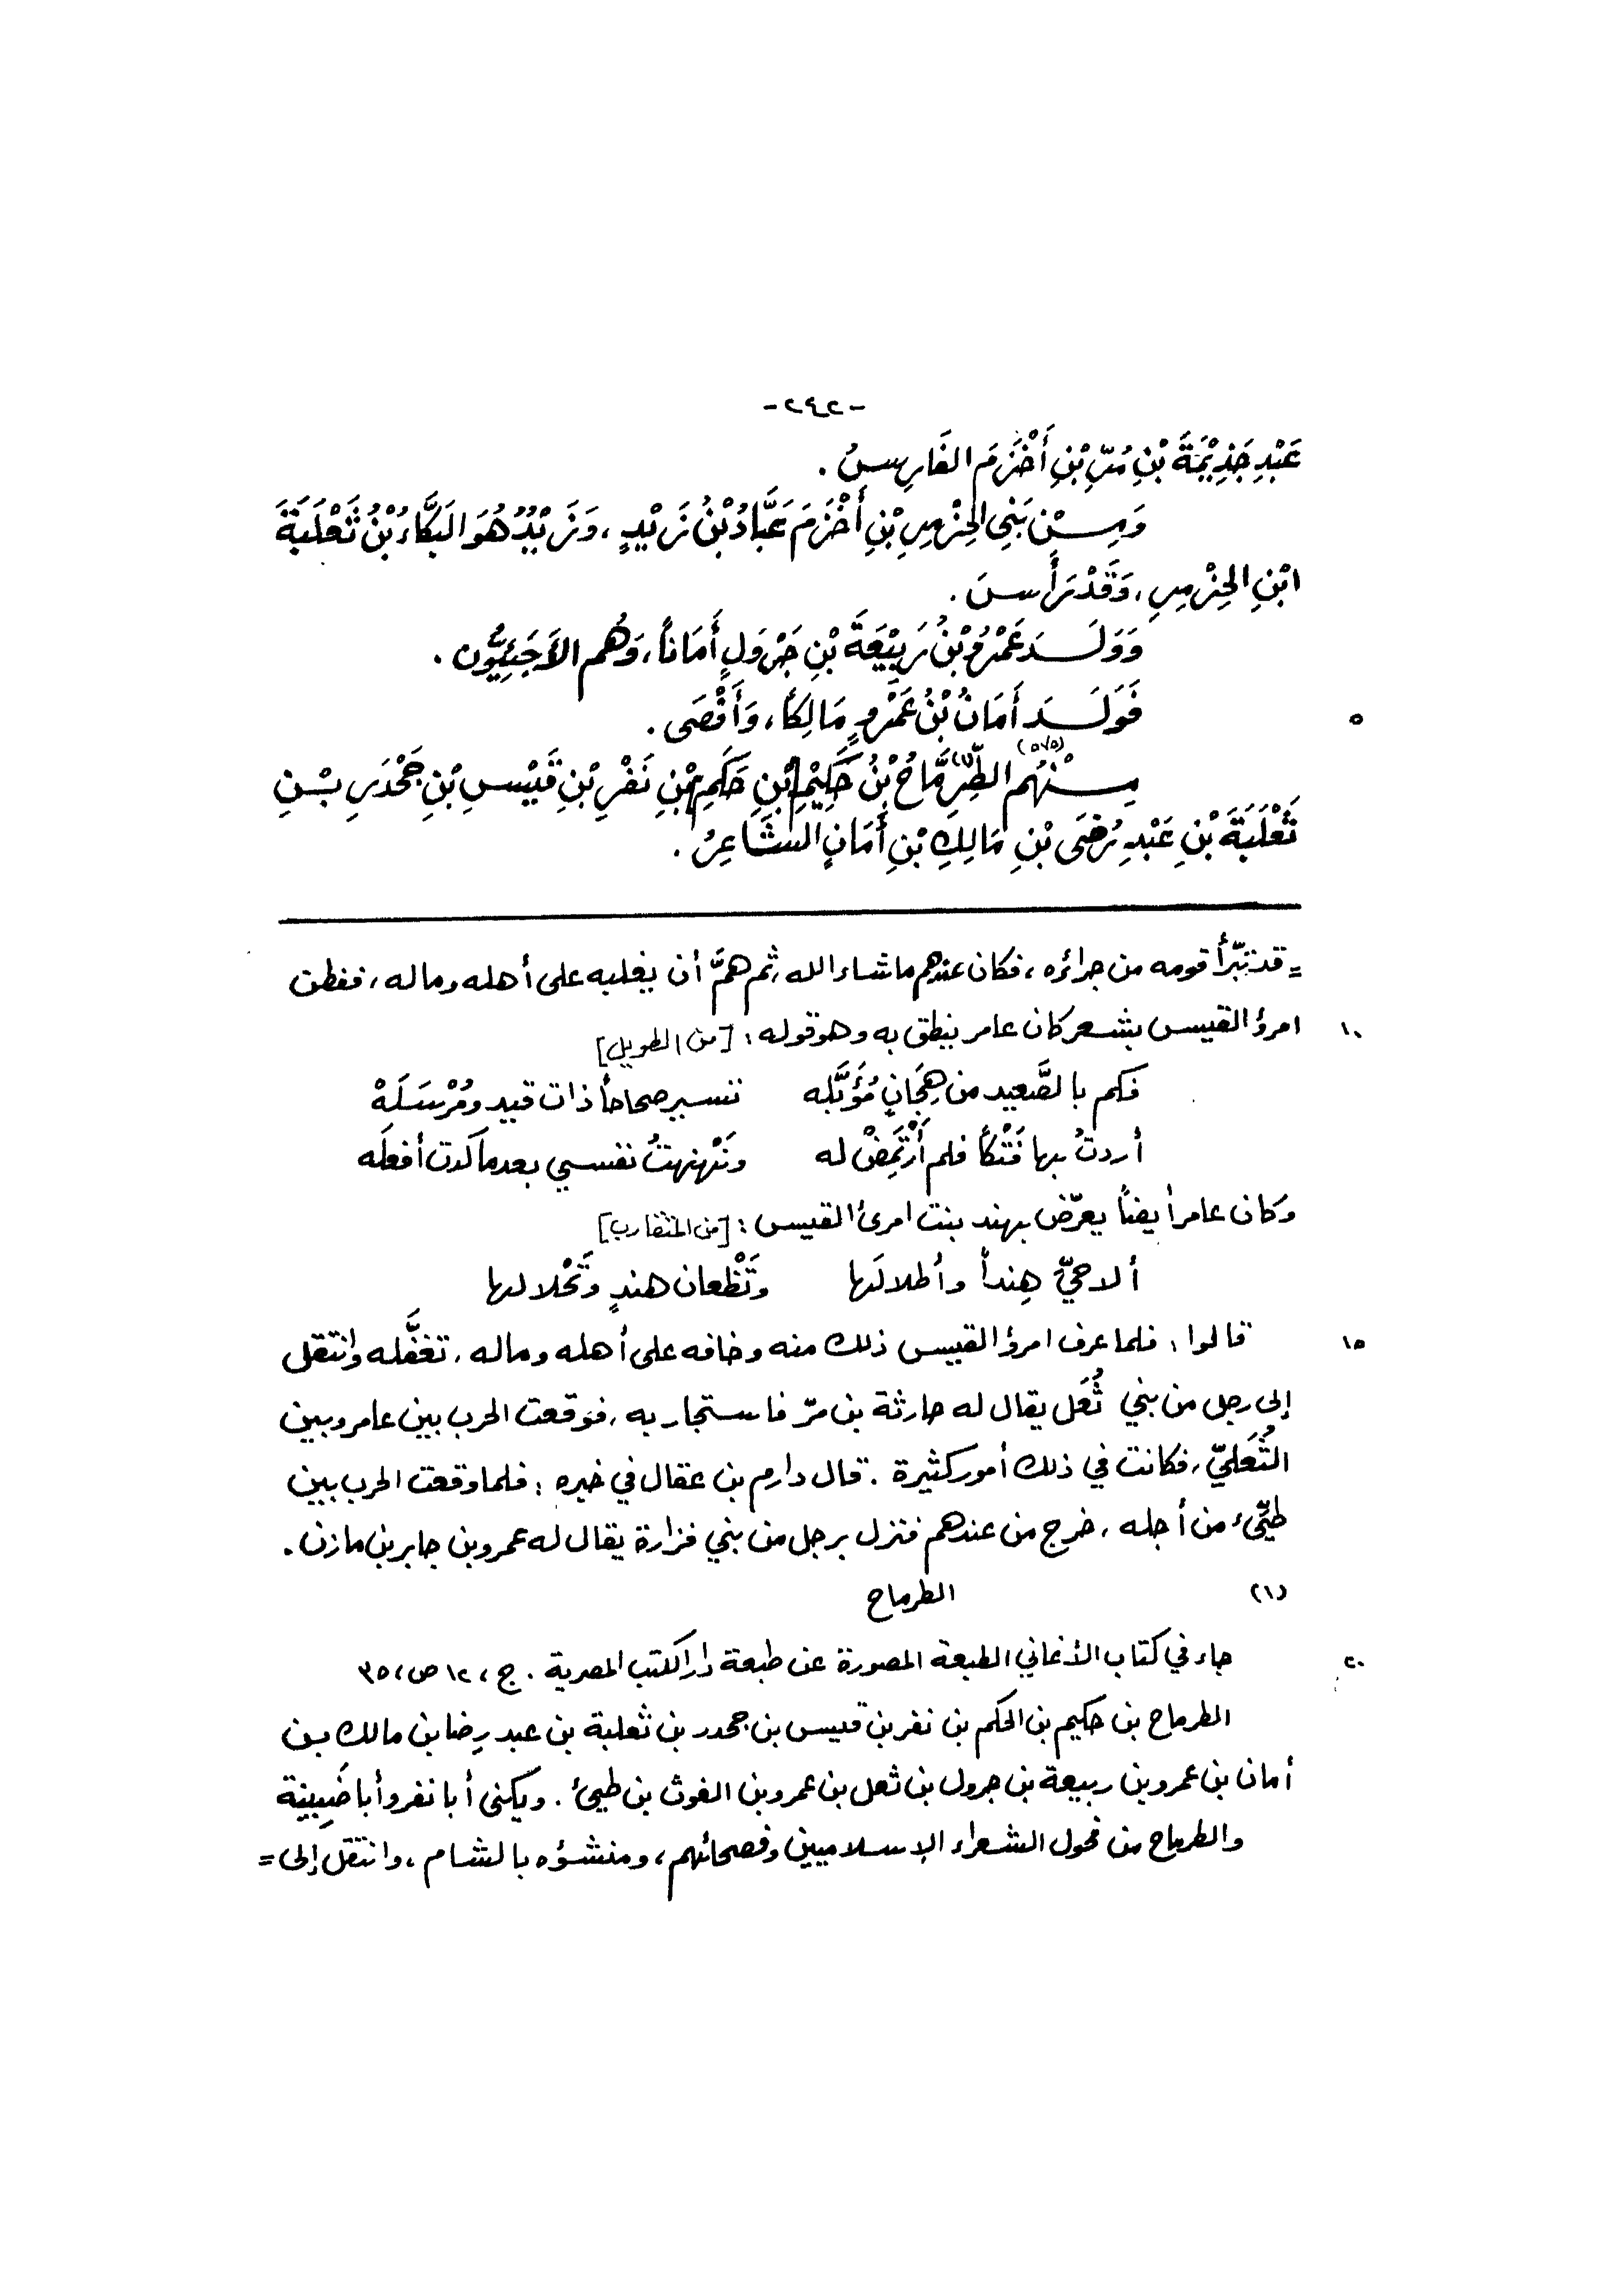 -٢٤٢-
عَبْدِ جَذِيْمَةَ بْنِ مُرِّ بْنِ أَخْزَمَ الفَارِسُ .
وَمِنْ بَنِي الحِزْمِرِ بْنِ أَخْزَمَ عَبَّادُ بْنُ زَيْدٍ ، وَزَيْدُ هُوَ البَكَّاءُ بْنُ ثَعْلَبَةَ
ابْنِ الحِزْمِرِ ، وَقَدْ رَأَسَ .
وَوَلَدَ عَمْرُو بْنُ رَبِيْعَةَ بْنِ جَرْوَلٍ أَمَاناً ، وَهُم الأَجَئِيُّون .
٥ فَوَلَدَ أَمَانُ بْنُ عَمْرٍو مَالِكاً ، وَأَقْصَى .
مِنْهُم الطِّرِمَّاحُ (١) بْنُ حَكِيْمِ بْنِ حَكَمِ بْنِ نَفْرِ بْنِ قَيْسِ بْنِ جَحْدَرِ بْنِ
ثَعْلَبَةَ بْنِ عَبْدِ رُضَى بْنِ مَالِكِ بْنِ أَمَانٍ الشَّاعِرُ .
= قد تبّرأ قومه من جرائره ، فكان عندهم ما شاء الله ، ثم همَّ أن يغلبه على أهله وماله ، ففطن
١٠ امرؤ القيس بشعر كان عامر ينطق به وهو قوله : [من الطويل]
فكم بالصَّعيد من هِجَانٍ مُؤَبَّله تسير صحاحاً ذات قيد ومُرْسَلَهْ
أردتُ بها فَتْكاً فلم أَرْتَمِضْ له ونَهْنهتُ نفسي بعدما كدت أفعلَه
وكان عامر أيضاً يعرّض بهند بنت امرئ القيس : [من المتقارب]
ألا حيِّ هِنداً وأطلالَها وتَظْعان هندٍ وتَحْلالها
١٥ قالوا : فلما عرف امرؤ القيس ذلك منه وخافه على أهله وماله ، تغفَّله وانتقل
إلى رجل من بني ثُعَل يقال له حارثة بن مرّ فاستجار به ، فوقعت الحرب بين عامر وبين
الثُعَليّ ، فكانت في ذلك أمور كثيرة . قال دارم بن عقال في خبره : فلما وقعت الحرب بين
طيّئ من أجله ، خرج من عندهم فنزل برجل من بني فزارة يقال له عمرو بن جابر بن مازن .
(١) الطرماح
٢٠ جاء في كتاب الأغاني الطبعة المصورة عن طبعة دار الكتب المصرية . ج ، ١٢ ص ، ٣٥
الطرماح بن حكيم بن الحكم بن نفر بن قيس بن جحدر بن ثعلبة بن عبد رِضا بن مالك بن
أمان بن عمرو بن ربيعة بن جرول بن ثعل بن عمرو بن الغوث بن طيئ . ويكنى أبا نفر وأبا ضَبِينة
والطرماح من فحول الشعراء الإسلاميين وفصحائهم ، ومنشؤه بالشام ، وانتقل إلى =